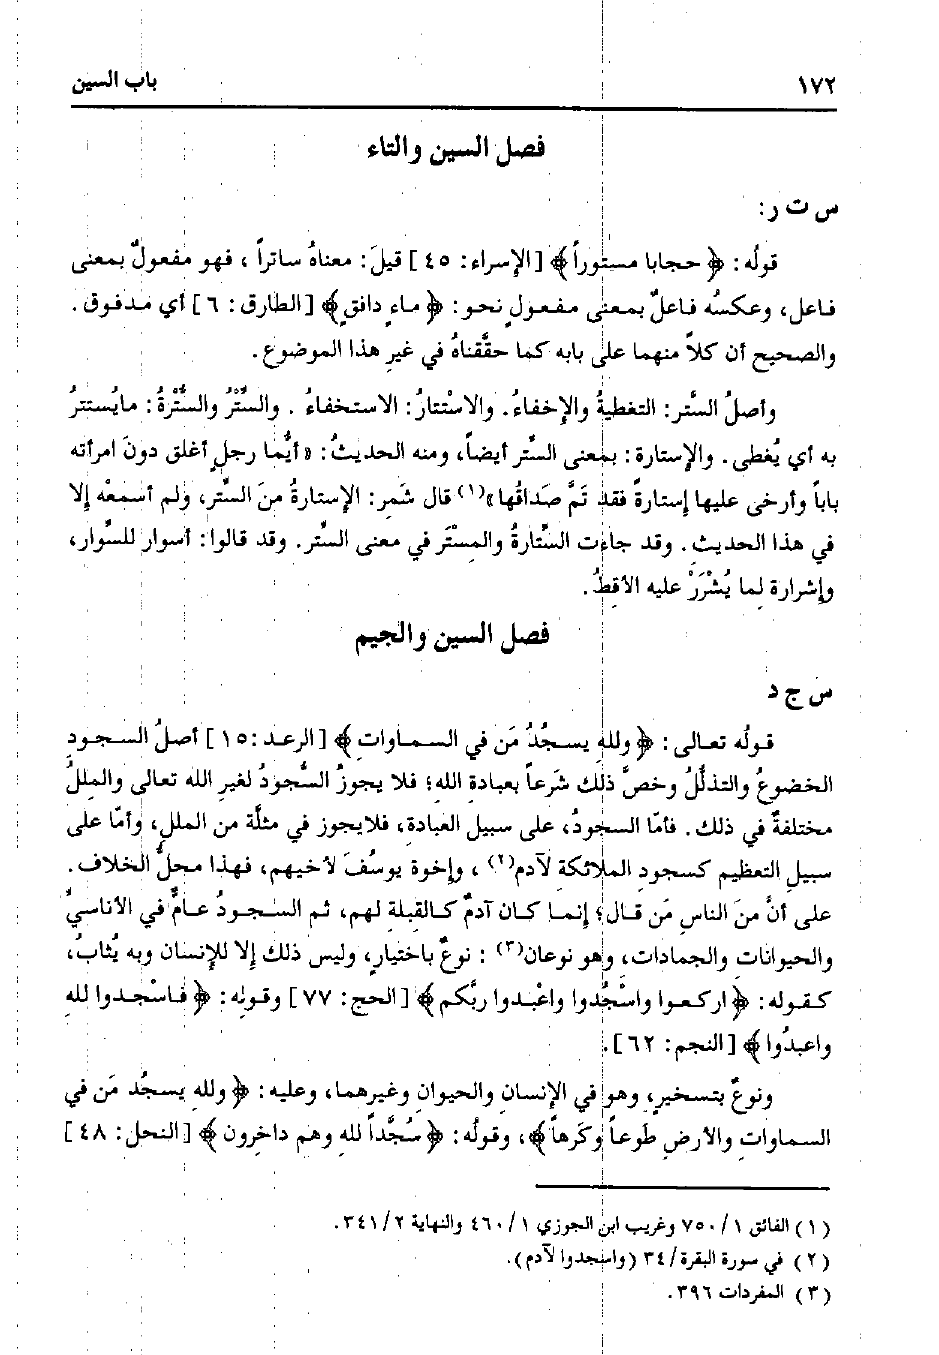 ١٧٢
باب السين
فصل السين والتاء
س ت ر:
قولُه: ﴿حجابا مستوراً﴾ [الإسراء: ٤٥] قيلَ: معناهُ ساتراً، فهو مفعولٌ بمعنى
فاعل، وعكسُه فاعلٌ بمعنى مفعولٍ نحو: ﴿ماءٍ دافقٍ﴾ [الطارق: ٦] أي مدفوق.
والصحيح أن كلاً منهما على بابه كما حقَّقناهُ في غيرِ هذا الموضوع.
وأصلُ السَّتر: التغطيةُ والإخفاءُ. والاسْتتارُ: الاستخفاءُ. والسُّتْرُ والسُّتْرةُ: مايُستترُ
به أي يُغطى. والإستارة: بمعنى السَّتر أيضاً، ومنه الحديثُ: «أيُّما رجلٍ أغلق دونَ امرأته
باباً وأرخى عليها إستارةً فقد تَمَّ صَداقُها»(١) قال شَمر: الإستارةُ منَ السَّتر، ولم أسمعْه إلا
في هذا الحديث. وقد جاءت السِّتارةُ والمِسْتَر في معنى السِّتر. وقد قالوا: أسوار للسِّوار،
وإشرارة لما يُشْرَرْ عليه الأقطُ.
فصل السين والجيم
س ج د
قولُه تعالى: ﴿وللهِ يسجُدُ مَن في السماوات﴾ [الرعد: ١٥] أصلُ السجودِ
الخضوعُ والتذلُّلُ وخصَّ ذلك شَرعاً بعبادةِ الله؛ فلا يجوزُ السُّجودُ لغيرِ الله تعالى والمللُ
مختلفةٌ في ذلك. فأمّا السجودُ، على سبيل العبادة، فلايجوز في مثلَّة من الملل، وأمّا على
سبيلِ التعظيم كسجودِ الملائكة لآدم(٢)، وإخوة يوسُفَ لأخيهم، فهذا محلُّ الخلاف.
على أنَّ منَ الناسِ مَن قال؛ إنما كان آدمُ كالقِبلة لهم، ثم السجودُ عامٌّ في الأناسيِّ
والحيوانات والجمادات، وهو نوعان(٣): نوعٌ باختيارٍ، وليس ذلك إلا للإنسان وبه يُثابُ،
كقوله: ﴿اركعوا واسْجُدوا واعْبدوا ربَّكم﴾ [الحج: ٧٧] وقوله: ﴿فاسْجدوا لله
واعبدُوا﴾ [النجم: ٦٢].
ونوعٌ بتسخيرٍ، وهو في الإنسان والحيوانِ وغيرهما، وعليه: ﴿وللهِ يسجُد مَن في
السماواتِ والأرضِ طَوعاً وكَرهاً﴾، وقولُه: ﴿سُجَّداً للهِ وهم داخِرون﴾ [النحل: ٤٨]
(١) الفائق ١/ ٧٥٠ وغريب ابن الجوزي ١/ ٤٦٠ والنهاية ٢/ ٣٤١.
(٢) في سورة البقرة/ ٣٤ (واسجدوا لآدم).
(٣) المفردات ٣٩٦.